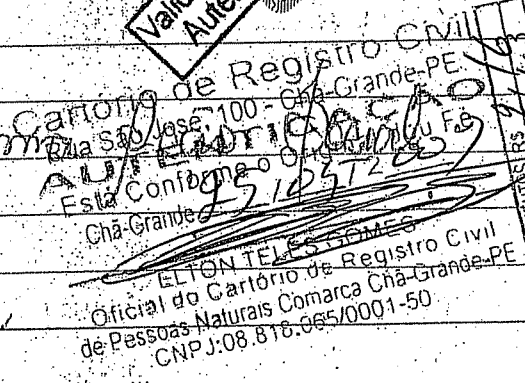 Cartório de Registro Civil
Rua São José, 100 - Chã-Grande-PE.
AUTENTICAÇÃO
Está Conforme o Dou Fé
Chã-Grande 25/05/2007
ELTON TELES GOMES
Oficial do Cartório de Registro Civil
de Pessoas Naturais Comarca Chã-Grande-PE
CNPJ:08.818.065/0001-50